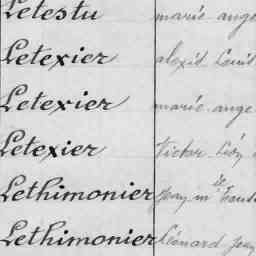 Letestu marie ange
Letexier alexis Louis
Letexier marie ange
Letexier Victor Léon
Lethimonier Jean m
Lethimonier Léonard Jean